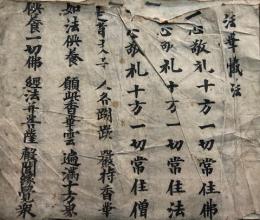 法華懺法
一心敬礼十方一切常住佛
一心敬礼十方一切常住法
一心敬礼十方一切常住僧
人各 嚴持香華
如法供養 願此香華雲 遍滿十方界
供養一切佛 經法并菩薩 聲聞縁覺衆